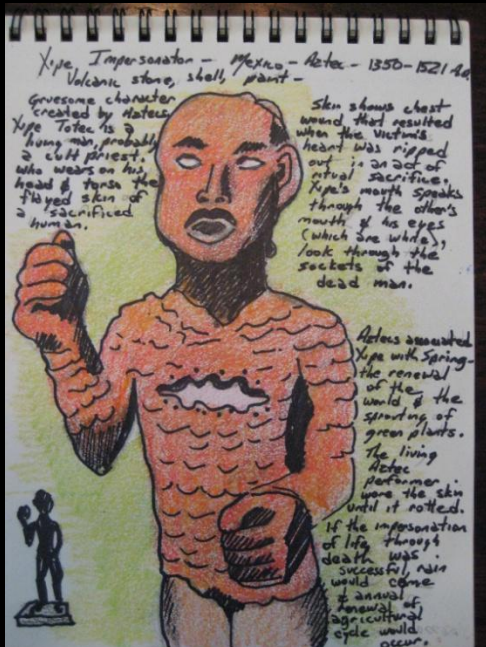 Xipe Impersonator - Mexico - Aztec - 1350-1521 A.D.
Volcanic stone, shell, paint -
Gruesome character
created by Aztecs
Xipe Totec is a
living man, probably
a cult priest,
who wears on his
head & torso the
flayed skin of
a sacrificed
human.
Skin shows chest
wound that resulted
when the victim's
heart was ripped
out in an act of
ritual sacrifice.
Xipe's mouth speaks
through the other's
mouth & his eyes
(which are white),
look through the
sockets of the
dead man.
Aztecs associated
Xipe with Spring-
the renewal
of the
world & the
sprouting of
green plants.
The living
Aztec
performer
wore the skin
until it rotted.
If the impersonation
of life through
death was
successful, rain
would come
& annual
renewal of
agricultural
cycle would
occur.